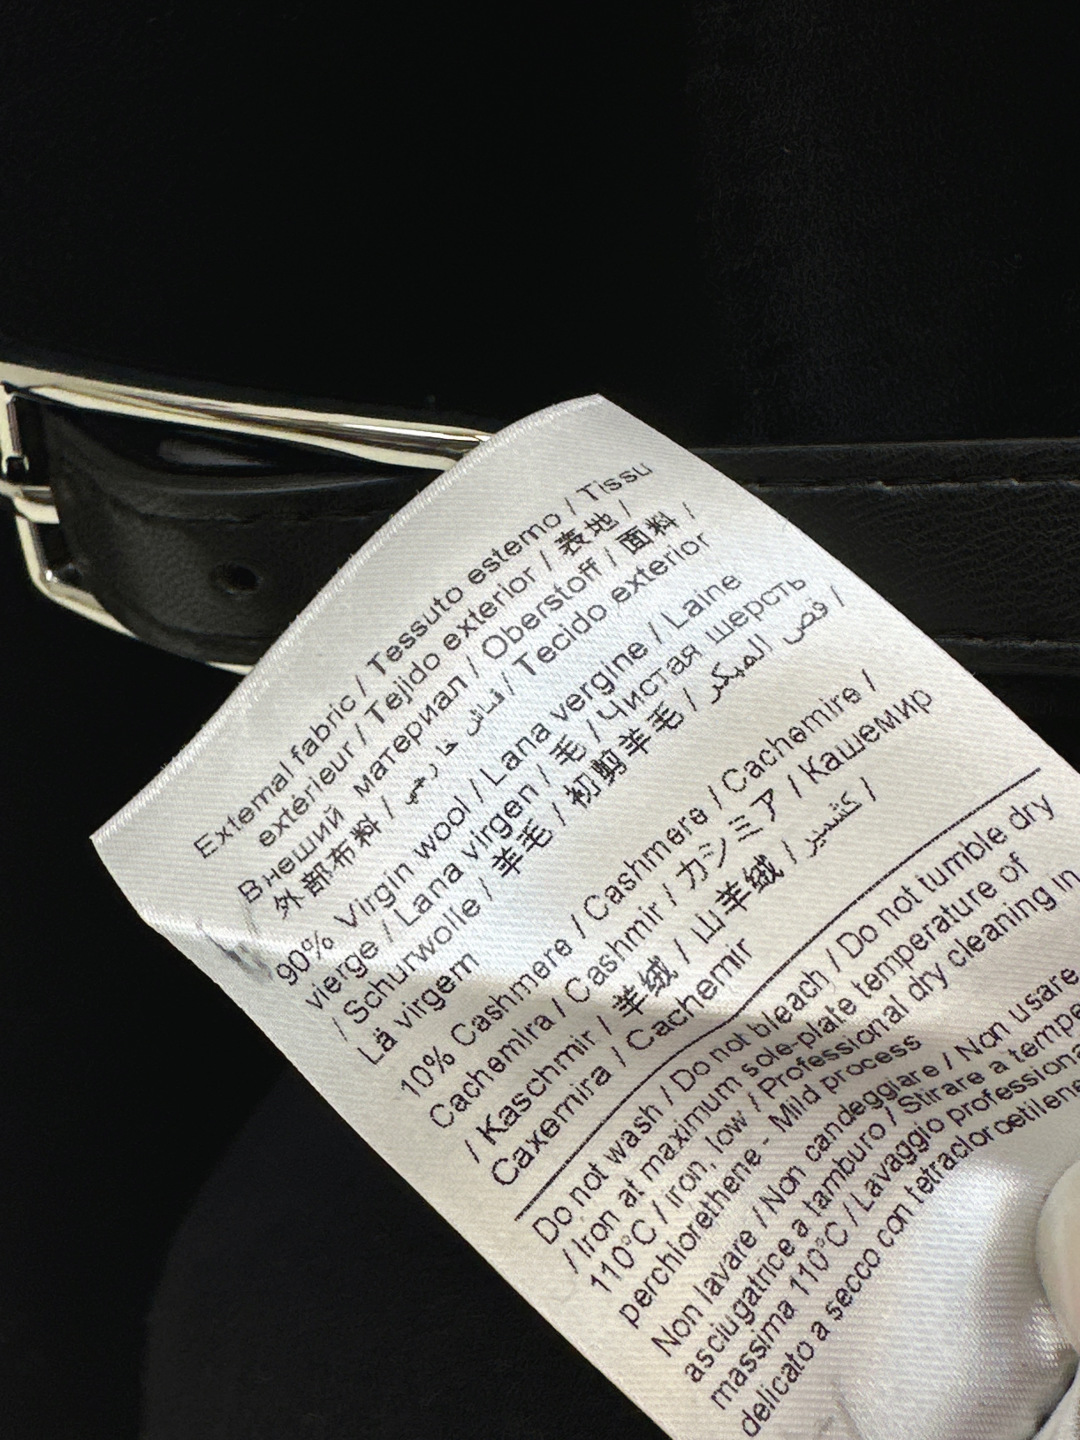 External fabric / Tessuto esterno / Tissu
extérieur / Tejido exterior / 表地 /
Внешний материал / Oberstoff / 面料 /
外部布料 / قماش خارجي / Tecido exterior
90% Virgin wool / Lana vergine / Laine
vierge / Lana virgen / 毛 / Чистая шерсть
/ Schurwolle / 羊毛 / 初剪羊毛 / قص المبكر /
Lã virgem
10% Cashmere / Cashmere / Cachemire /
Cachemira / Cashmir / カシミア / Кашемир
/ Kaschmir / 羊绒 / 山羊绒 / كشمير /
Caxemira / Cachemir
Do not wash / Do not bleach / Do not tumble dry
/ Iron at maximum sole-plate temperature of
110°C / Iron, low / Professional dry cleaning in
perchlorethene - Mild process
Non lavare / Non candeggiare / Non usare
asciugatrice a tamburo / Stirare a tempe
massima 110°C / Lavaggio professiona
delicato a secco con tetracloroetilene